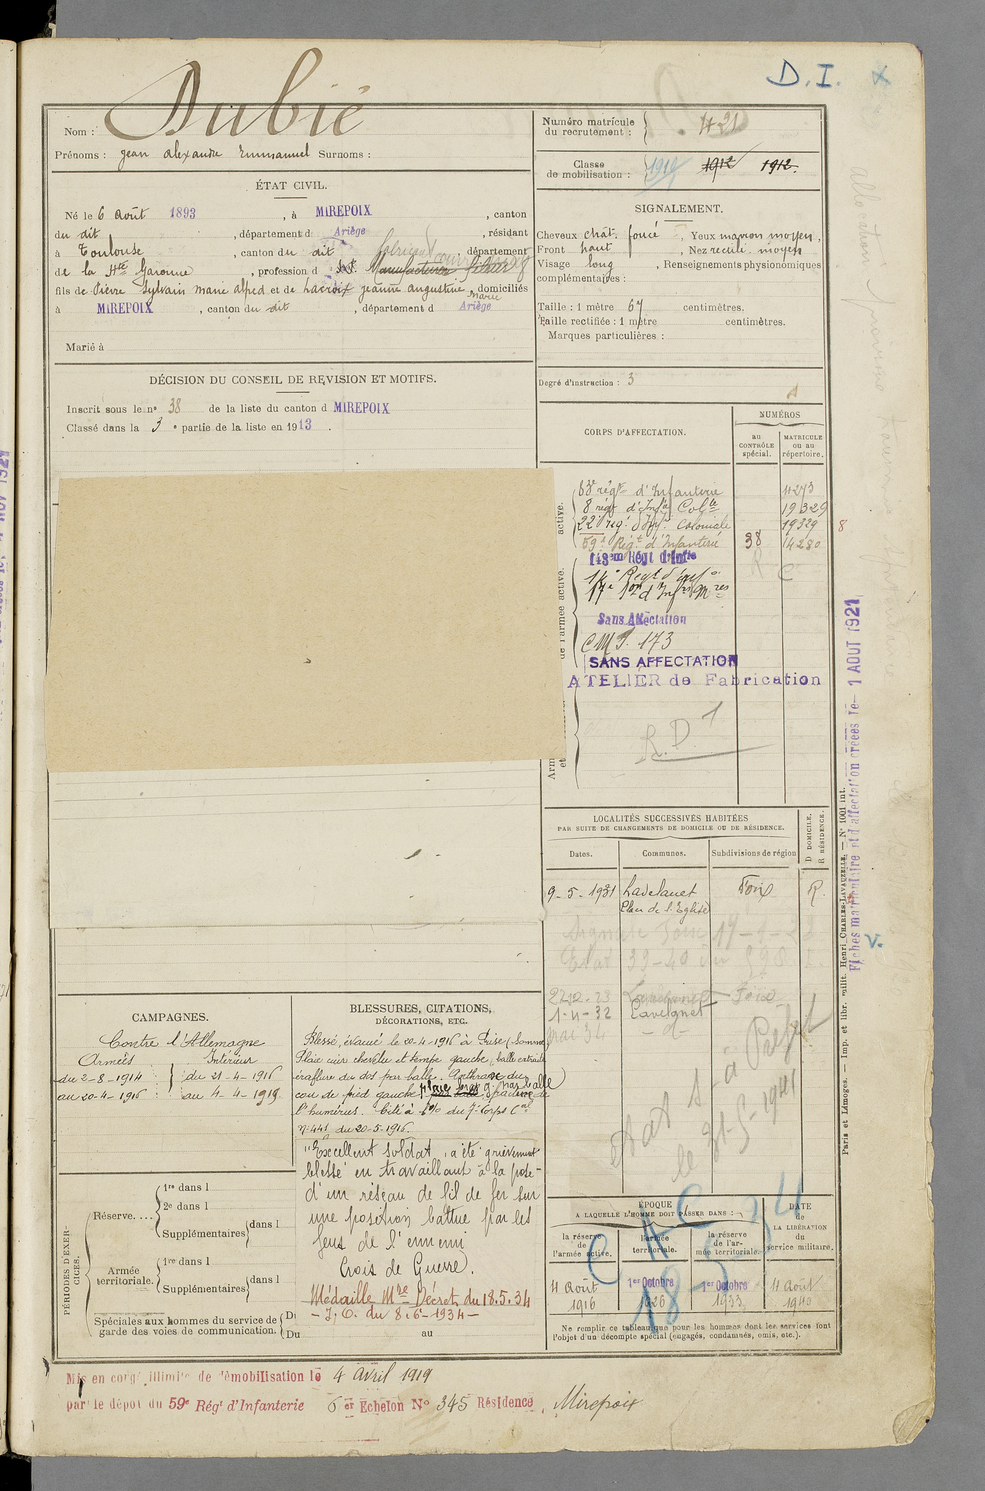 D. I.
Nom : Aubié
Prénoms : Jean Alexandre Emmanuel Surnoms :
Numéro matricule du recrutement : 421
Classe de mobilisation : 1910 1912 1912.
ÉTAT CIVIL.
Né le 6 Août 1893, à MIREPOIX, canton
du dit, département d Ariège, résidant
à Toulouse, canton du dit, département
de la Hte Garonne, profession d
fils de Pierre Sylvain Marie Alfred et de Lacroix Jeanne Augustine Marie, domiciliés
à MIREPOIX, canton du dit, département d Ariège
Marié à
SIGNALEMENT.
Cheveux chât. foncé, Yeux marron moyen,
Front haut, Nez rectil. moyen
Visage long, Renseignements physionomiques
complémentaires :
Taille : 1 mètre 67 centimètres.
Taille rectifiée : 1 mètre centimètres.
Marques particulières :
Degré d'instruction : 3
DÉCISION DU CONSEIL DE REVISION ET MOTIFS.
Inscrit sous le n° 38 de la liste du canton d MIREPOIX
Classé dans la 3e partie de la liste en 1913.
CORPS D'AFFECTATION.
NUMÉROS
au CONTRÔLE spécial.
MATRICULE ou au répertoire.
83e régt d'Infanterie 4273
8 régt d'Infie Colle 19329
22e rég. d'Inf. Coloniale 19329
59e Régt d'Infanterie 38 14280
143eme Régt d'Infie
Sans Affectation
C M I. 173
SANS AFFECTATION
ATELIER de Fabrication
R.D 1
LOCALITÉS SUCCESSIVES HABITÉES
PAR SUITE DE CHANGEMENTS DE DOMICILE OU DE RÉSIDENCE.
Dates. Communes. Subdivisions de région
D DOMICILE. R RÉSIDENCE.
9-5-1931 Lavelanet Foix R.
Plan de l'Eglise
1-4-32 Lavelanet
mai 34 -d-
CAMPAGNES.
Contre l'Allemagne
Armées Intérieur
du 2-8-1914 du 21-4-1916
au 20-4-1916 au 4-4-1919
BLESSURES, CITATIONS,
DÉCORATIONS, ETC.
Blessé, évacué le 20-4-1916 à Frise (Somme)
Plaie cuir chevelu et tempe gauche, balle extraite
éraflure du dos par balle. Anthrax du
cou de pied gauche, Plaie bras g. par balle
fracture de
l'humérus. Cité à l'o/ du 7e Corps Cal
n° 441 du 20-5-1916.
"Excellent soldat, a été grièvement
blessé en travaillant à la pose
d'un réseau de fil de fer sur
une position battue par les
feux de l'ennemi
Croix de Guerre.
Médaille Mre Décret du 18.5.34
- J. O. du 8-6-1934 -
PÉRIODES D'EXERCICES.
Réserve....
1re dans l
2e dans l
Supplémentaires dans l
Armée territoriale.
1re dans l
Supplémentaires dans l
Spéciales aux hommes du service de garde des voies de communication.
Du
Du au
ÉPOQUE
A LAQUELLE L'HOMME DOIT PASSER DANS :
la réserve de l'armée active.
l'armée territoriale.
la réserve de l'armée territoriale.
DATE de LA LIBÉRATION du service militaire.
4 Août 1916
1er Octobre 1926
1er Octobre 1933
4 Août 1940
Ne remplir ce tableau que pour les hommes dont les services font
l'objet d'un décompte spécial (engagés, condamnés, omis, etc.).
Mis en congé illimité de démobilisation le 4 avril 1919
par le dépôt du 59e Rég t d'Infanterie 6 er Echelon N° 345 Résidence, Mirepoix
Paris et Limoges. — Imp. et libr. milit. Henri CHARLES-LAVAUZELLE. — N° 1001 int.
Fiches matriculaire et d'affectation créées le 1 AOUT 1921
V.